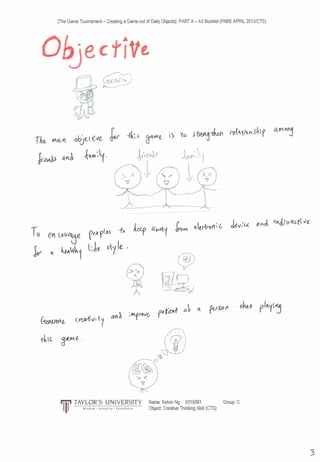 [The Game Tournament – Creating a Game out of Daily Objects]: PART A – A3 Booklet (FNBE APRIL 2013/CTS)
Objective
The main objective for this game is to strengthen relationship among
friends and family.
friends family
To encourage peoples to keep away from electronic device and radioactive
for a healthy life style.
Generate creativity and improve patient of a person when playing
this game.
TAYLOR'S UNIVERSITY
Wisdom · Integrity · Excellence
Name: Kelvin Ng 0315081 Group: C
Object: Creative Thinking Skill (CTS)
3